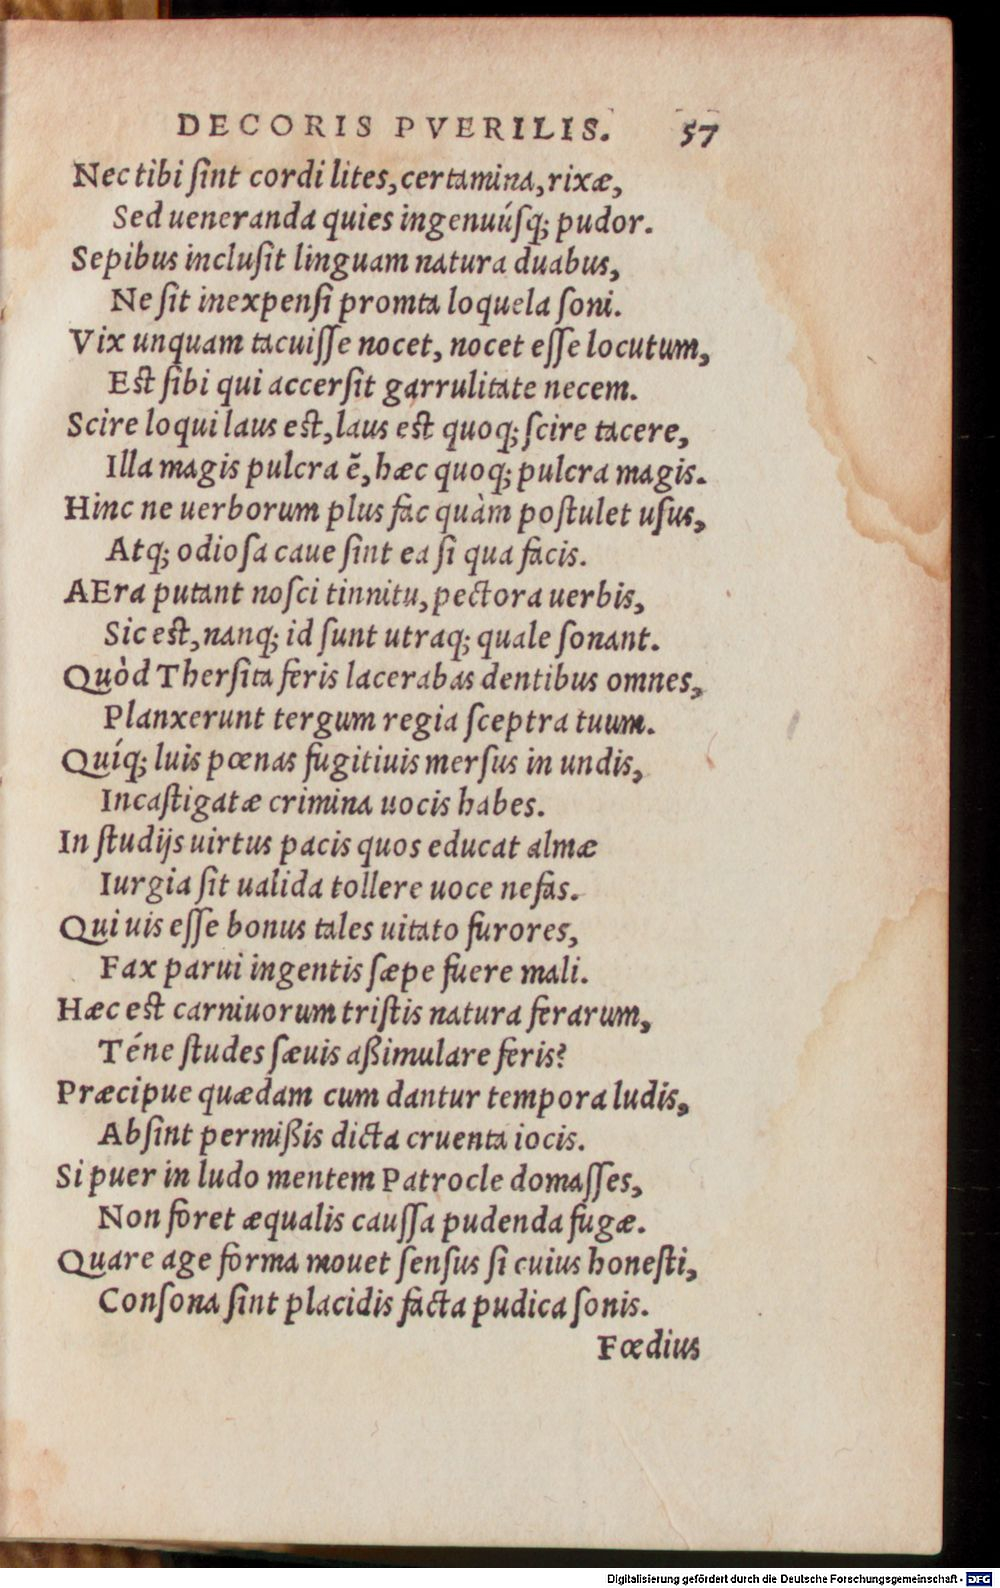 DECORIS PVERILIS. 57
Nec tibi ſint cordi lites, certamina, rixæ,
Sed ueneranda quies ingenuúſq; pudor.
Sepibus incluſit linguam natura duabus,
Ne ſit inexpenſi promta loquela ſoni.
Vix unquam tacuiſſe nocet, nocet eſſe locutum,
Eſt ſibi qui accerſit garrulitate necem.
Scire loqui laus eſt, laus eſt quoq; ſcire tacere,
Illa magis pulcra ē, hæc quoq; pulcra magis.
Hinc ne uerborum plus fac quàm poſtulet uſus,
Atq; odioſa caue ſint ea ſi qua facis.
AEra putant noſci tinnitu, pectora uerbis,
Sic eſt, nanq; id ſunt utraq; quale ſonant.
Quòd Therſita feris lacerabas dentibus omnes,
Planxerunt tergum regia ſceptra tuum.
Quíq; luis pœnas fugitiuis merſus in undis,
Incaſtigatæ crimina uocis habes.
In ſtudijs uirtus pacis quos educat almæ
Iurgia ſit ualida tollere uoce nefas.
Qui uis eſſe bonus tales uitato furores,
Fax parui ingentis ſæpe fuere mali.
Hæc eſt carniuorum triſtis natura ferarum,
Téne ſtudes ſæuis aßimulare feris?
Præcipue quædam cum dantur tempora ludis,
Abſint permißis dicta cruenta iocis.
Si puer in ludo mentem Patrocle domaſſes,
Non foret æqualis cauſſa pudenda fugæ.
Quare age forma mouet ſenſus ſi cuius honeſti,
Conſona ſint placidis facta pudica ſonis.
Fœdius
Digitalisierung gefördert durch die Deutsche Forschungsgemeinschaft - DFG